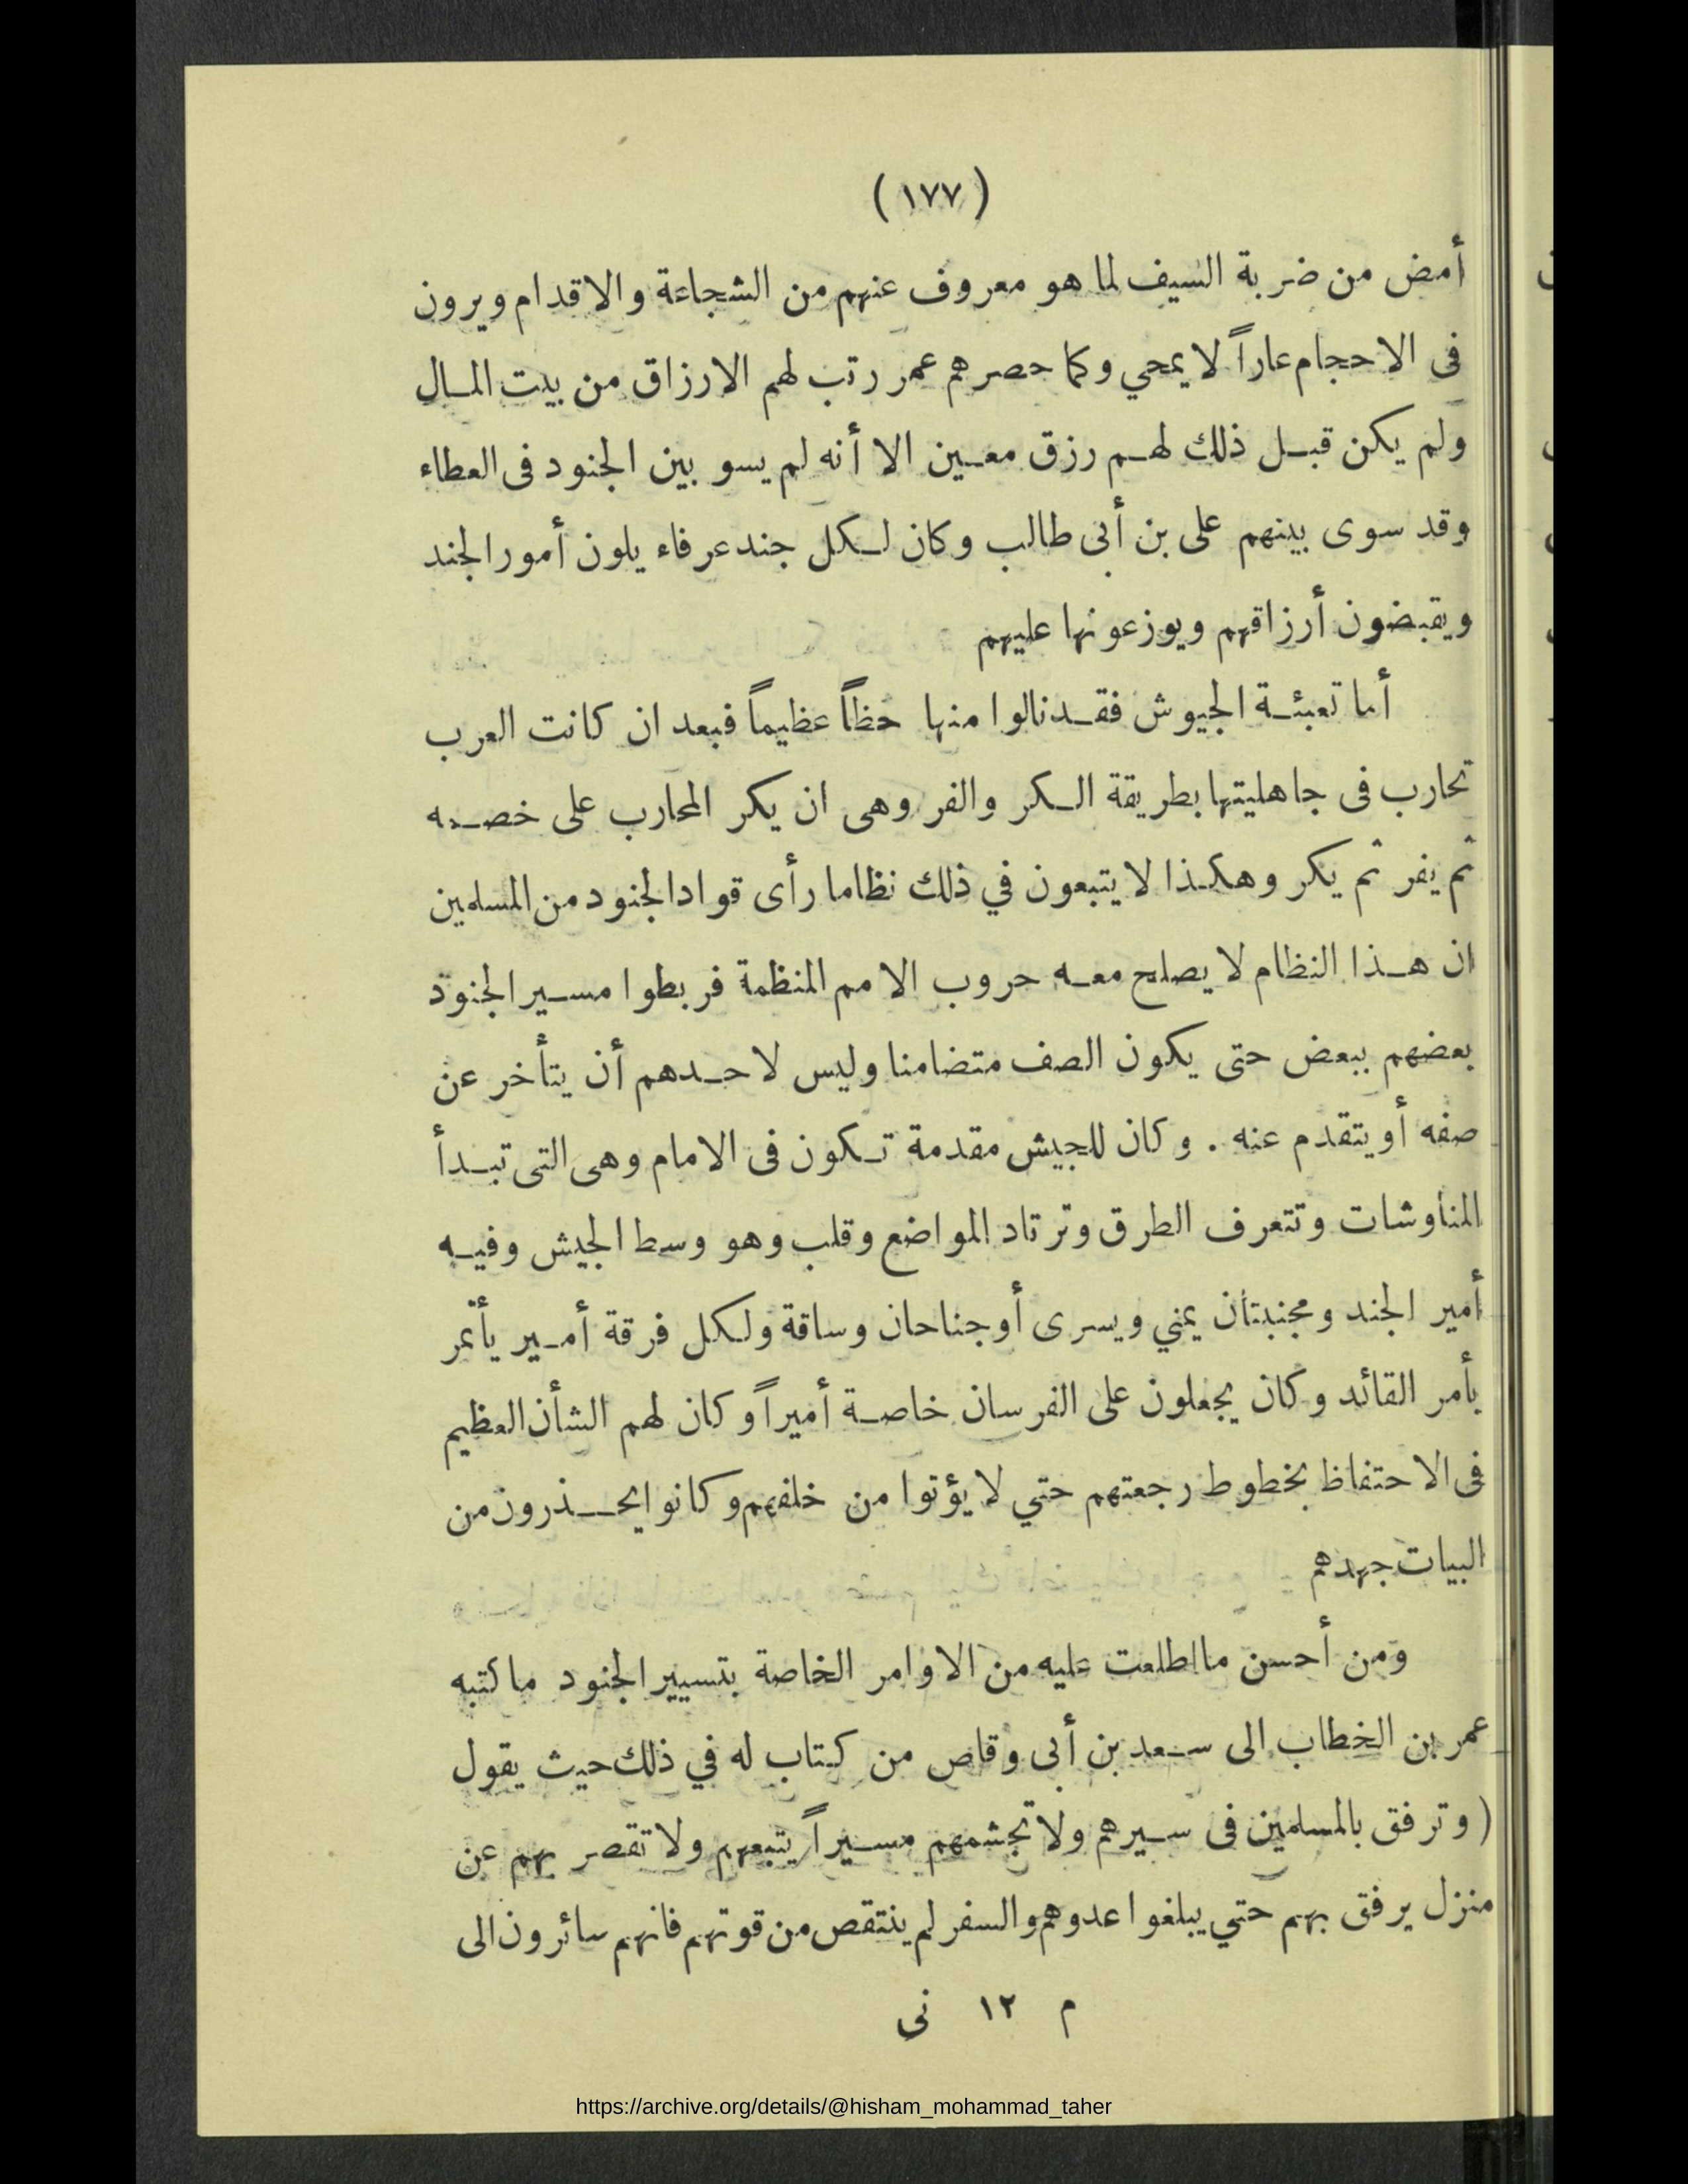 (١٧٧)
أمض من ضربة السيف لما هو معروف عنهم من الشجاعة والاقدام ويرون
فى الاحجام عاراً لا يمحي وكما حصرهم عمر رتب لهم الارزاق من بيت المال
ولم يكن قبل ذلك لهم رزق معين الا أنه لم يسو بين الجنود فى العطاء
وقد سوى بينهم على بن أبى طالب وكان لكل جند عرفاء يلون أمور الجند
ويقبضون أرزاقهم ويوزعونها عليهم
أما تعبئة الجيوش فقد نالوا منها حظاً عظيماً فبعد ان كانت العرب
تحارب فى جاهليتها بطريقة الكر والفر وهى ان يكر المحارب على خصمه
ثم يفر ثم يكر وهكذا لا يتبعون في ذلك نظاما رأى قواد الجنود من المسلمين
ان هذا النظام لا يصلح معه حروب الامم المنظمة فربطوا مسير الجنود
بعضهم ببعض حتى يكون الصف متضامنا وليس لاحدهم أن يتأخر عن
صفه أو يتقدم عنه . وكان للجيش مقدمة تكون فى الامام وهى التى تبدأ
المناوشات وتتعرف الطرق وترتاد المواضع وقلب وهو وسط الجيش وفيه
أمير الجند ومجنبتان يمني ويسرى أو جناحان وساقة ولكل فرقة أمير يأتمر
بأمر القائد وكان يجعلون على الفرسان خاصة أميراً وكان لهم الشأن العظيم
فى الاحتفاظ بخطوط رجعتهم حتي لا يؤتوا من خلفهم وكانوا يحذرون من
البيات جهدهم
ومن أحسن ما اطلعت عليه من الاوامر الخاصة بتسيير الجنود ما كتبه
عمر بن الخطاب الى سعد بن أبى وقاص من كتاب له في ذلك حيث يقول
( وترفق بالمسلمين فى سيرهم ولا تجشمهم مسيراً يتبعهم ولا تقصر بهم عن
منزل يرفق بهم حتي يبلغوا عدوهم والسفر لم ينتقص من قوتهم فانهم سائرون الى
م ١٢ نى
https://archive.org/details/@hisham_mohammad_taher